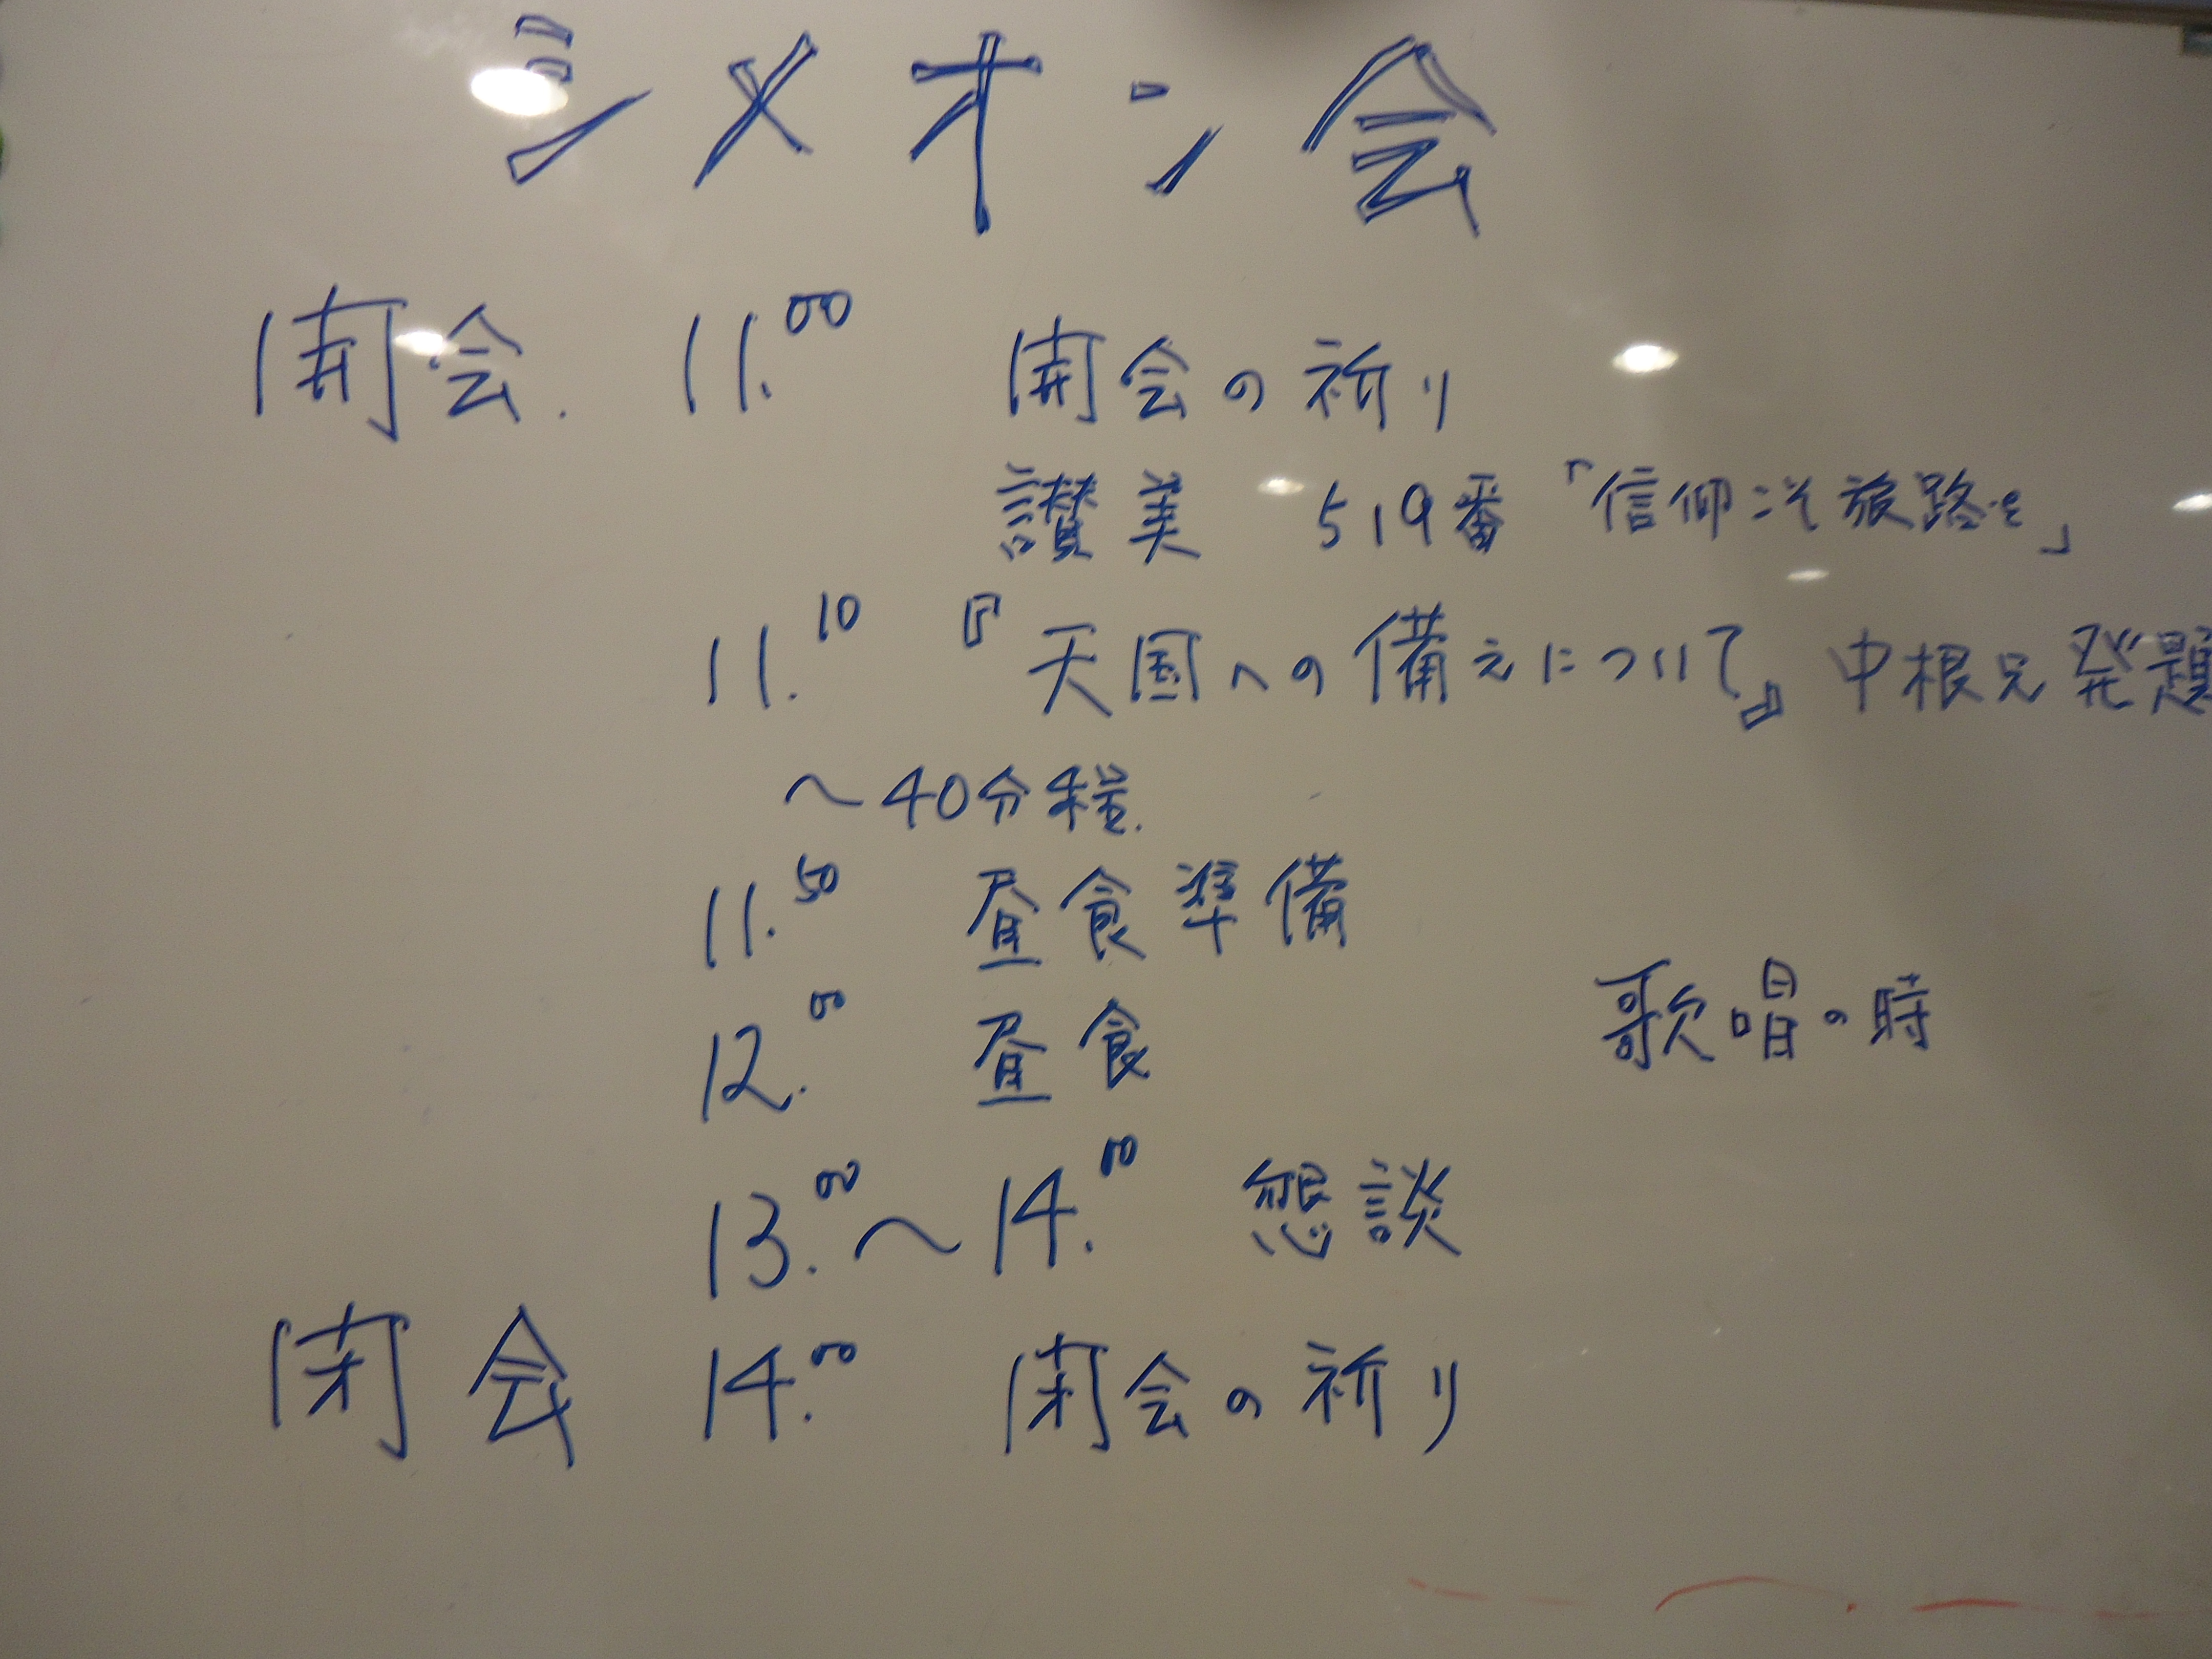 シメオン会
開会. 11.00 開会の祈り
讃美 519番「信仰こそ旅路を」
11.10 『天国への備えについて』中根兄発題
〜40分程.
11.50 昼食準備
12.00 昼食 歌唱の時
13.00〜14.00 懇談
閉会 14.00 閉会の祈り